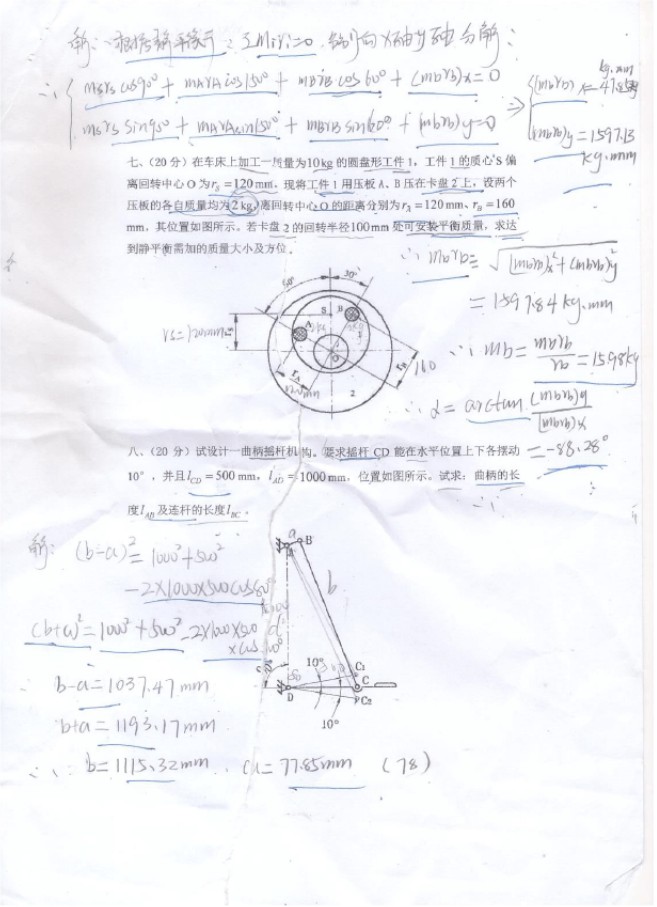 解：根据静平衡 ：ΣMiYi=0，
∴ { msrs cos90° + mArA cos150° + mBrB cos60° + (mbrb)x=0
ms rs sin90° + mArA sin150° + mBrB sin60° + (mbrb)y=0
⇒ {(mbrb)x=47.85
kg.mm
(mbrb)y=1597.13
kg.mm
七、（20 分）在车床上加工一质量为10kg 的圆盘形工件 1，工件 1 的质心'S 偏
离回转中心 O 为rs=120mm，现将工件 1 用压板 A、B 压在卡盘 2 上，设两个
压板的各自质量均为2 kg，离回转中心 O 的距离分别为rA=120mm、rB=160
mm，其位置如图所示。若卡盘 2 的回转半径100mm 处可安装平衡质量，求达
到静平衡需加的质量大小及方位。
∴ mbrb= √(mbrb)x²+(mbrb)y²
= 1597.84 kg.mm
∴ mb= mbrb/rb =15.98kg
∴ α= arctan (mbrb)y/(mbrb)x
=-88.28°
30°
S B
rs=120mm
A
1
O
rA
rB
160
120mm
2
八、（20 分）试设计一曲柄摇杆机构。要求摇杆 CD 能在水平位置上下各摆动
10°，并且lCD=500 mm，lAD=1000mm，位置如图所示。试求：曲柄的长
度lAB及连杆的长度lBC。
解：(b-a)²=1000²+500²
-2×1000×500cos80°
(b+a)²=1000²+500²-2×1000×500
×cos100°
∴ b-a=1037.47mm
b+a=1193.17mm
∴ b=1115.32mm. a=77.85mm (78)
a
B
b
d
10°
C1
C
D
C2
10°